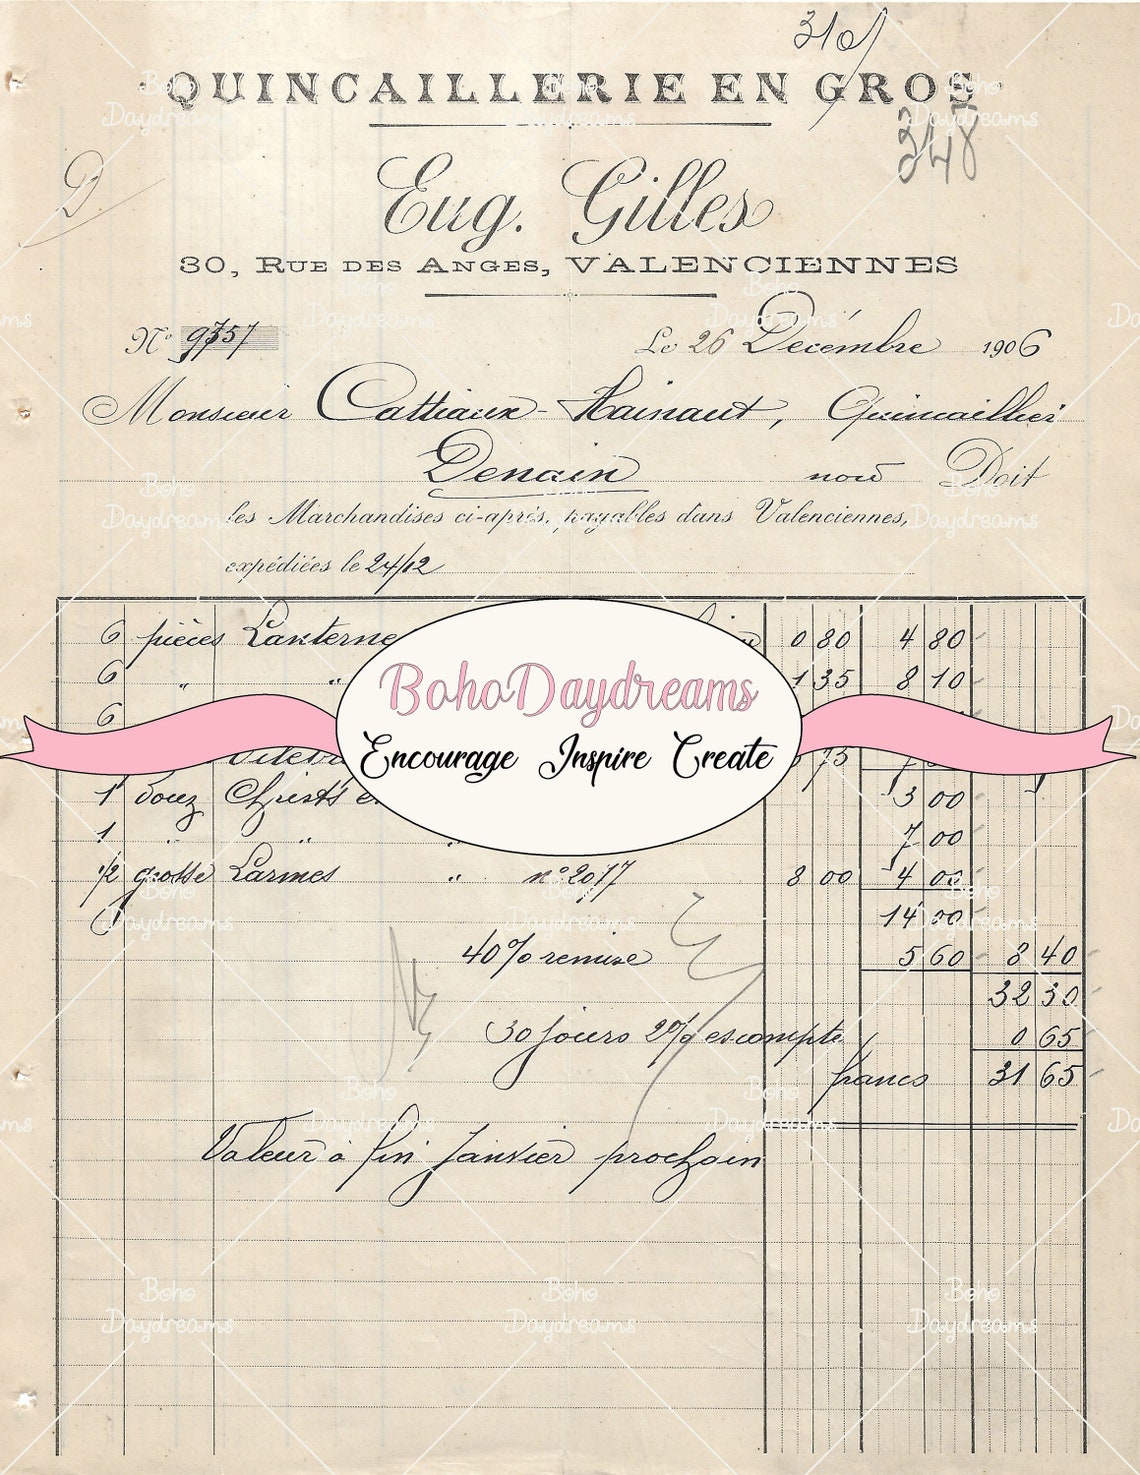 310
QUINCAILLERIE EN GROS
348
D
Eug. Gilles
30, RUE DES ANGES, VALENCIENNES
N° 9757
Le 26 Décembre 1906
Monsieur Cattiaux-Hainaut, Quincaillier
Denain nous Doit
les Marchandises ci-après, payables dans Valenciennes,
expédiées le 24/12
6 pièces Lanterne 0 80 4 80
6 " " 1 35 8 10
6
BohoDaydreams
Encourage Inspire Create
75
1 douz Christs 3 00
1 " " " 7 00
1/2 grosse Larmes " n° 2077 8 00 4 00
14 00
40% remise 5 60 8 40
32 30
30 jours 2% escompte 0 65
francs 31 65
Valeur à fin Janvier prochain
Boho Daydreams